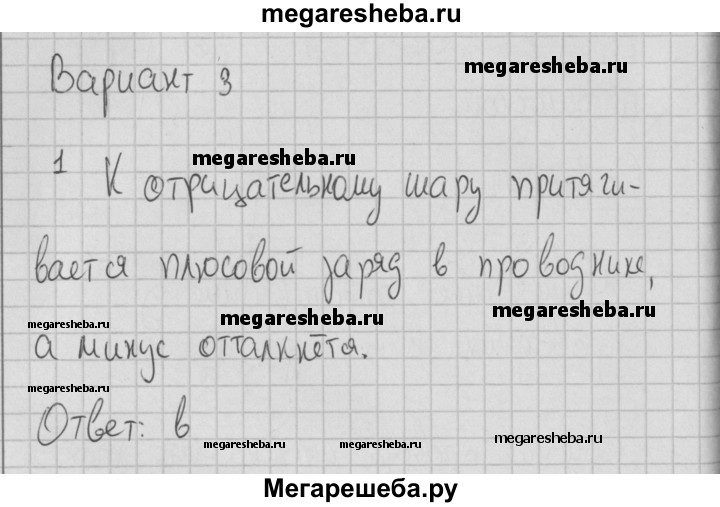 megaresheba.ru
Вариант 3
megaresheba.ru
1 К отрицательному шару притяги-
megaresheba.ru
вается плюсовой заряд в проводнике,
megaresheba.ru megaresheba.ru megaresheba.ru
а минус отталкнётся.
megaresheba.ru
Ответ: в
megaresheba.ru megaresheba.ru megaresheba.ru
Мегарешеба.ру